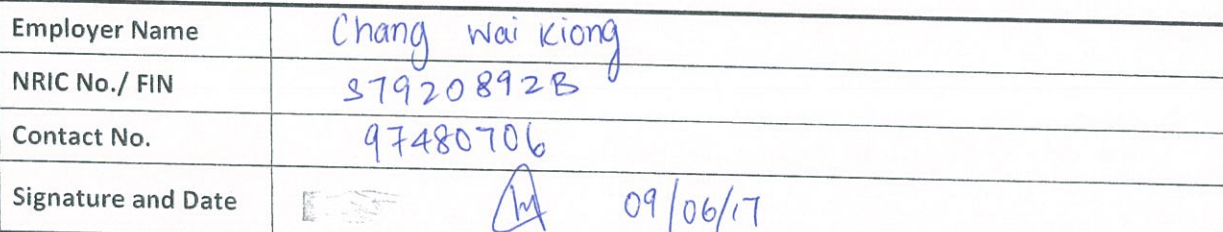 Employer Name Chang Wai Kiong
NRIC No./ FIN S7920892B
Contact No. 97480706
Signature and Date 09/06/17